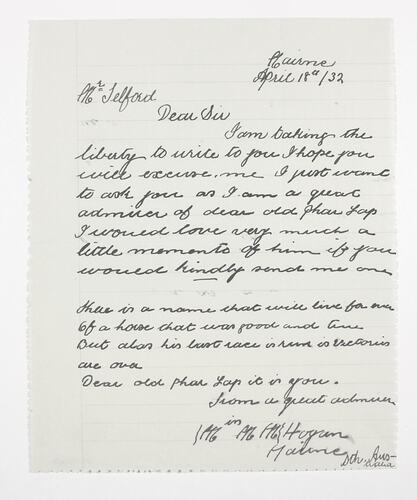 Nairne
April 18th/32
Mr Telford
Dear Sir
I am taking the
liberty to write to you I hope you
will excuse me I just want
to ask you as I am a great
admirer of dear old Phar Lap
I would love very much a
little memento of him if you
would kindly send me one
there is a name that will live for ever
Of a horse that was good and true
But alas his last race is run is victories
are over
Dear old Phar Lap it is you.
From a great admirer
Hogan
Nairne
Sth. Aus-
tralia